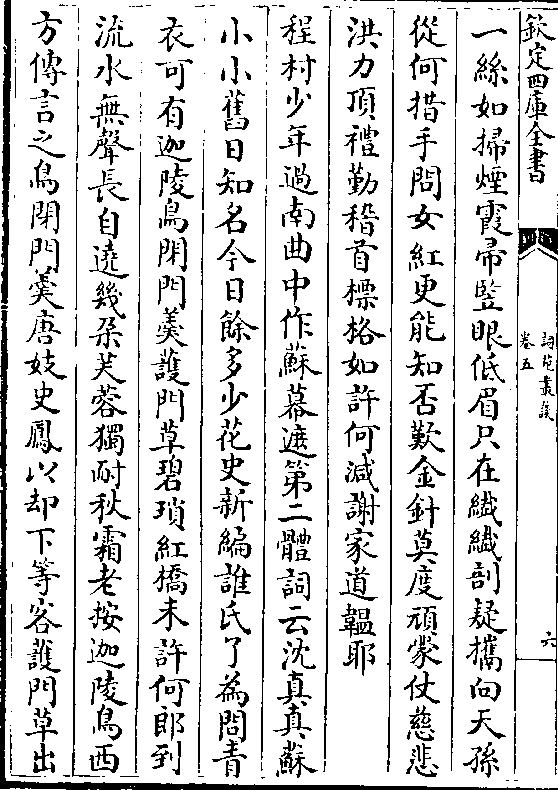 欽定四庫全書
詞苑叢談
卷五
六
一絲如掃煙霞帚豎眼低眉只在纎纎剖疑攜向天孫
從何措手問女紅更能知否歎金針莫度頑蒙仗慈悲
洪力頂禮勤稽首標格如許何減謝家道韞耶
程村少年過南曲中作蘇幕遮第二體詞云沈真真蘇
小小舊日知名今日餘多少花史新編誰氏了為問青
衣可有迦陵鳥閉門羮護門草碧瑣紅橋未許何郎到
流水無聲長自遶幾朶芙蓉獨耐秋霜老按迦陵鳥西
方傳言之鳥閉門羮唐妓史鳳以却下等客護門草出